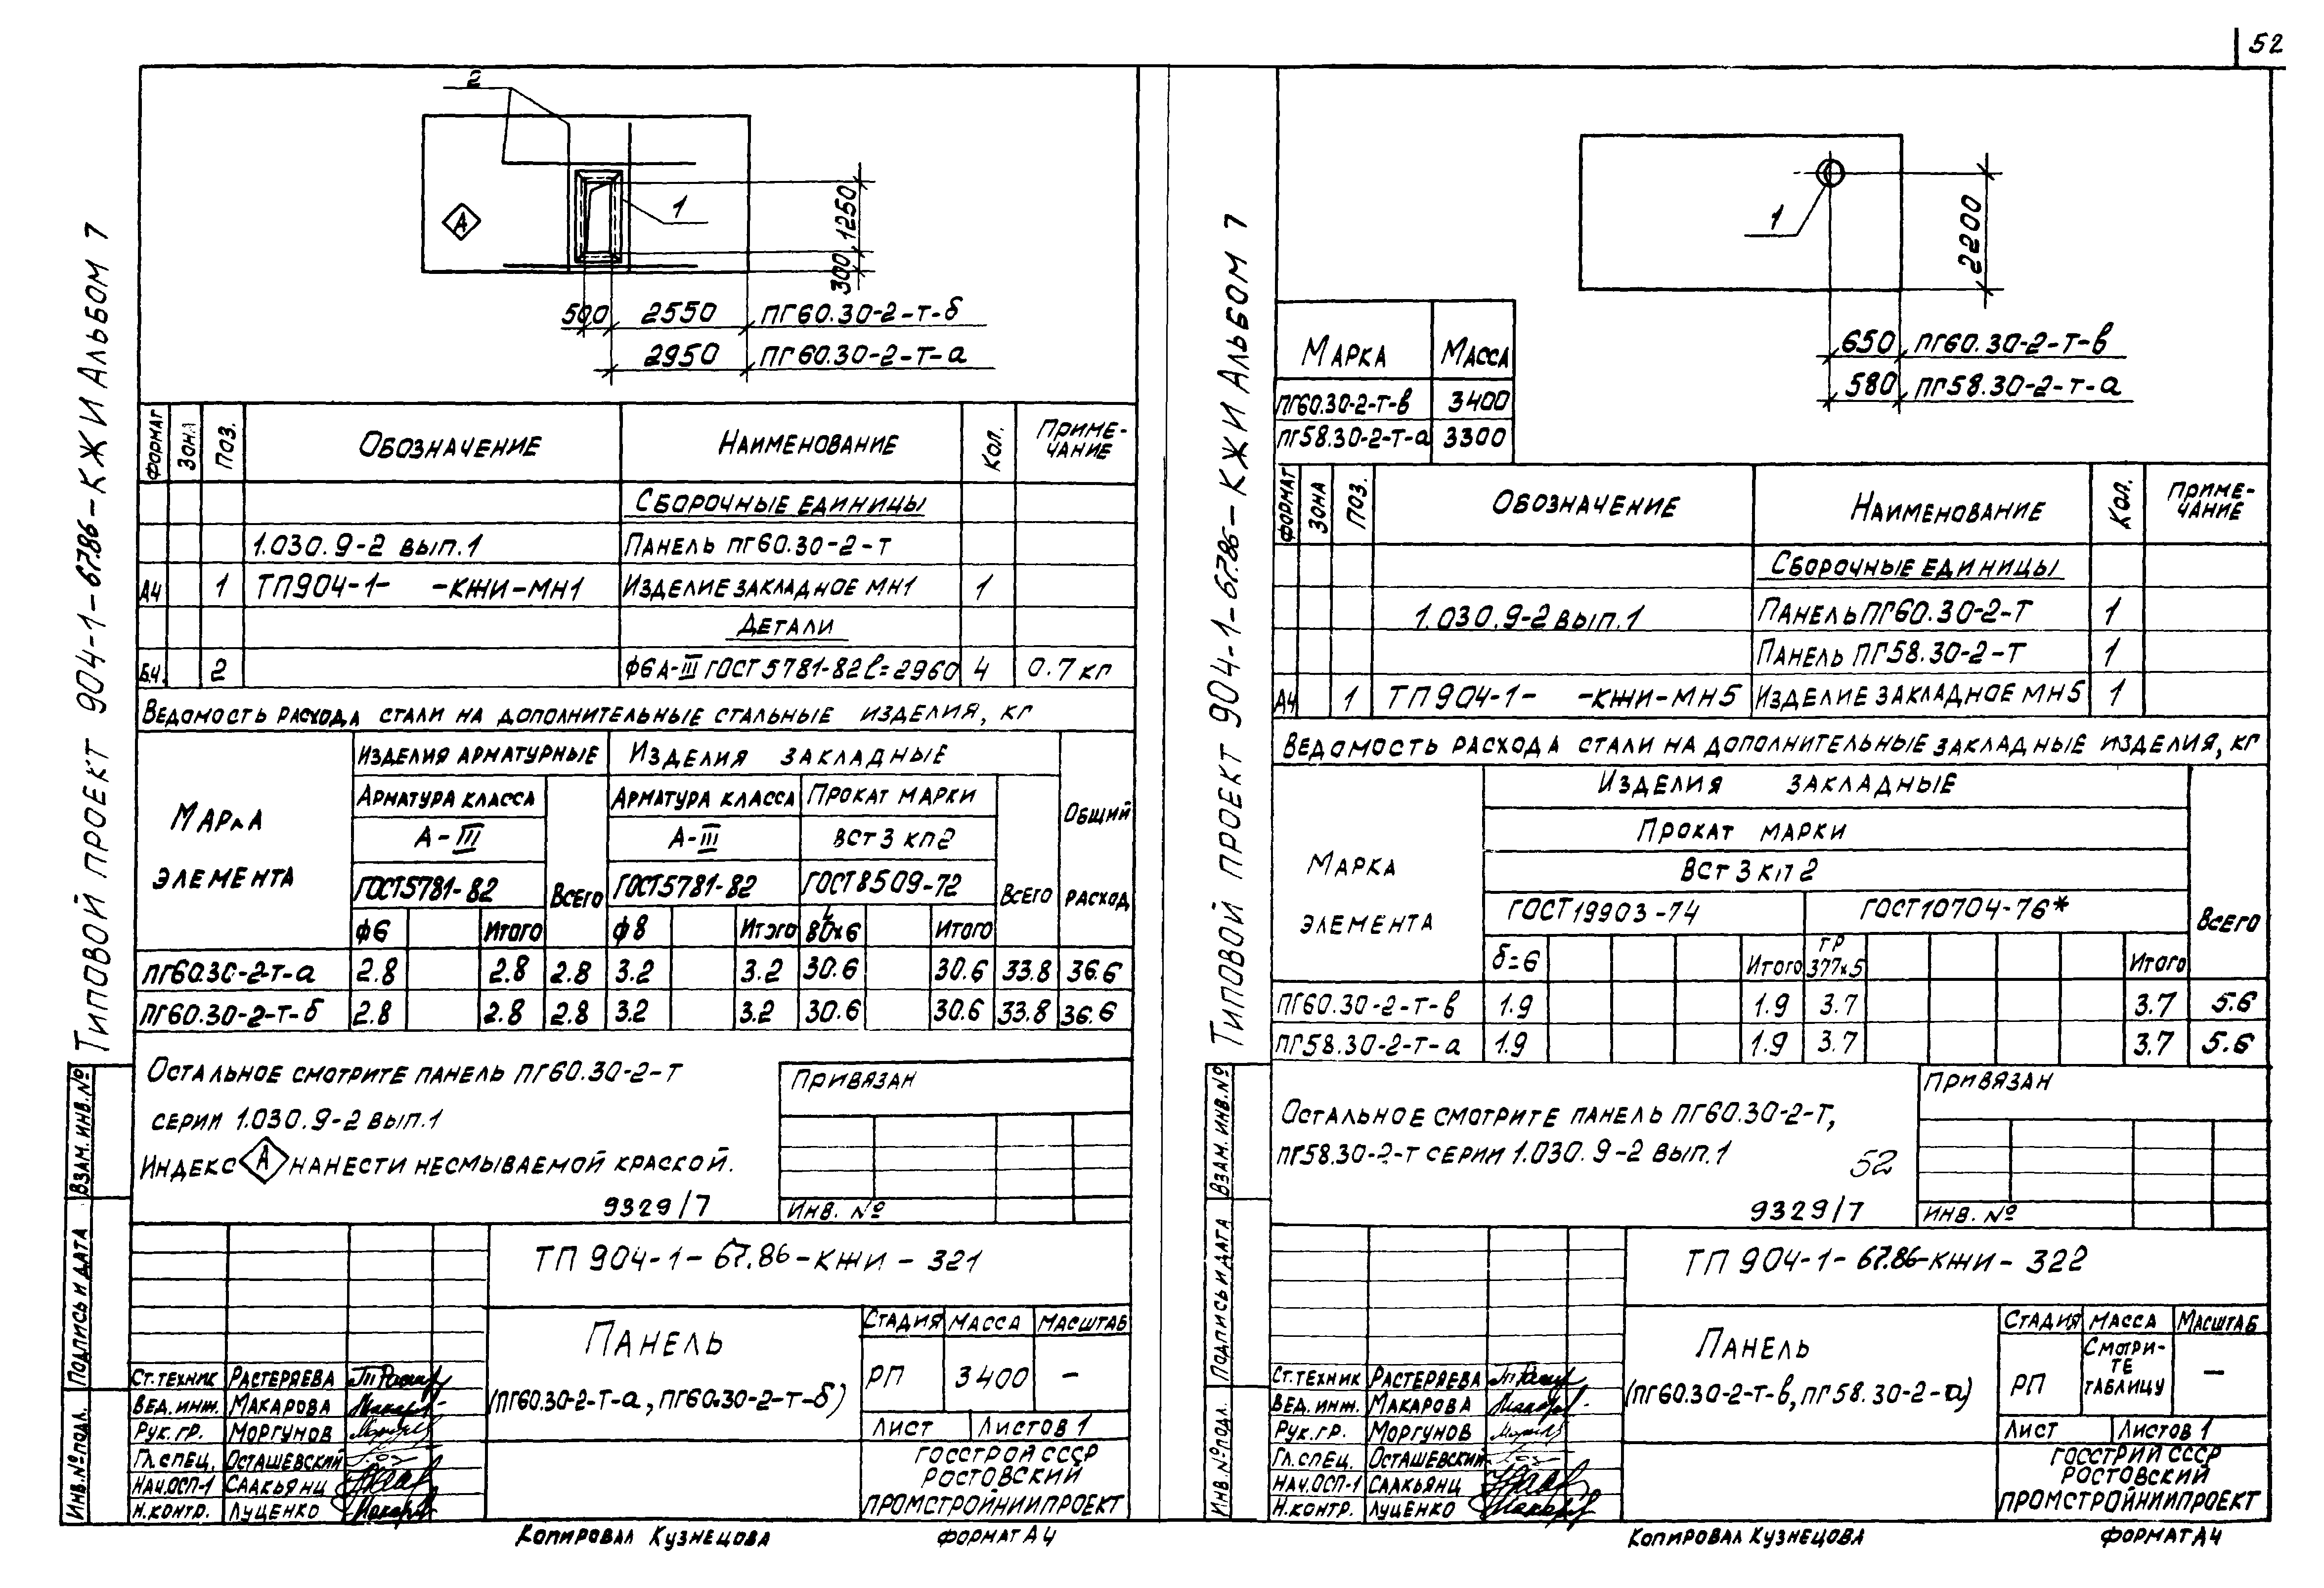 52
Типовой проект 904-1-67.86-КЖИ Альбом 7
2
А
1
300 1250
500 2550 ПГ60.30-2-Т-б
2950 ПГ60.30-2-Т-а
Формат Зона Поз. Обозначение Наименование Кол. Приме-
чание
Сборочные единицы
1.030.9-2 вып.1 Панель ПГ60.30-2-Т
А4 1 ТП904-1- -КЖИ-МН1 Изделие закладное МН1 1
Детали
Б.4. 2 Ф6А-III ГОСТ5781-82 ℓ=2960 4 0.7 кг
Ведомость расхода стали на дополнительные стальные изделия, кг
Марка
элемента
Изделия арматурные Изделия закладные Общий
расход
Арматура класса Арматура класса Прокат марки
А-III А-III ВСт3кп2
ГОСТ5781-82 Всего ГОСТ5781-82 ГОСТ8509-72 Всего
Ф6 Итого Ф8 Итого 80х6 Итого
ПГ60.30-2-Т-а 2.8 2.8 2.8 3.2 3.2 30.6 30.6 33.8 36.6
ПГ60.30-2-Т-б 2.8 2.8 2.8 3.2 3.2 30.6 30.6 33.8 36.6
Остальное смотрите панель ПГ60.30-2-Т
серии 1.030.9-2 вып.1
Индекс А нанести несмываемой краской.
9329/7
Привязан
Инв. №
ТП 904-1-67.86-КЖИ-321
Панель
(ПГ60.30-2-Т-а, ПГ60.30-2-Т-б)
Стадия Масса Масштаб
РП 3400 –
Лист Листов 1
Госстрой СССР
Ростовский
Промстройниипроект
Ст.техник Растеряева
Вед.инж. Макарова
Рук.гр. Моргунов
Гл.спец. Осташевский
Нач.ОСП-1 Саакьянц
Н.контр. Луценко
Взам.инв.№
Подпись и дата
Инв.№подл.
Копировал Кузнецова Формат А4
Типовой проект 904-1-67.86-КЖИ Альбом 7
1
2200
650 ПГ60.30-2-Т-в
580 ПГ58.30-2-Т-а
Марка Масса
ПГ60.30-2-Т-в 3400
ПГ58.30-2-Т-а 3300
Формат Зона Поз. Обозначение Наименование Кол. Приме-
чание
Сборочные единицы
1.030.9-2 вып.1 Панель ПГ60.30-2-Т 1
Панель ПГ58.30-2-Т 1
А4 1 ТП904-1- -КЖИ-МН5 Изделие закладное МН5 1
Ведомость расхода стали на дополнительные закладные изделия, кг
Марка
элемента
Изделия закладные
Прокат марки
ВСт3кп2
ГОСТ19903-74 ГОСТ10704-76* Всего
δ=6 Итого ТР
377х5 Итого
ПГ60.30-2-Т-в 1.9 1.9 3.7 3.7 5.6
ПГ58.30-2-Т-а 1.9 1.9 3.7 3.7 5.6
Остальное смотрите панель ПГ60.30-2-Т,
ПГ58.30-2-Т серии 1.030.9-2 вып.1
52
9329/7
Привязан
Инв. №
ТП 904-1-67.86-КЖИ-322
Панель
(ПГ60.30-2-Т-в, ПГ58.30-2-а)
Стадия Масса Масштаб
РП Смотри-
те
таблицу –
Лист Листов 1
Госстрий СССР
Ростовский
Промстройниипроект
Ст.техник Растеряева
Вед.инж. Макарова
Рук.гр. Моргунов
Гл.спец. Осташевский
Нач.ОСП-1 Саакьянц
Н.контр. Луценко
Взам.инв.№
Подпись и дата
Инв.№подл.
Копировал Кузнецова Формат А4